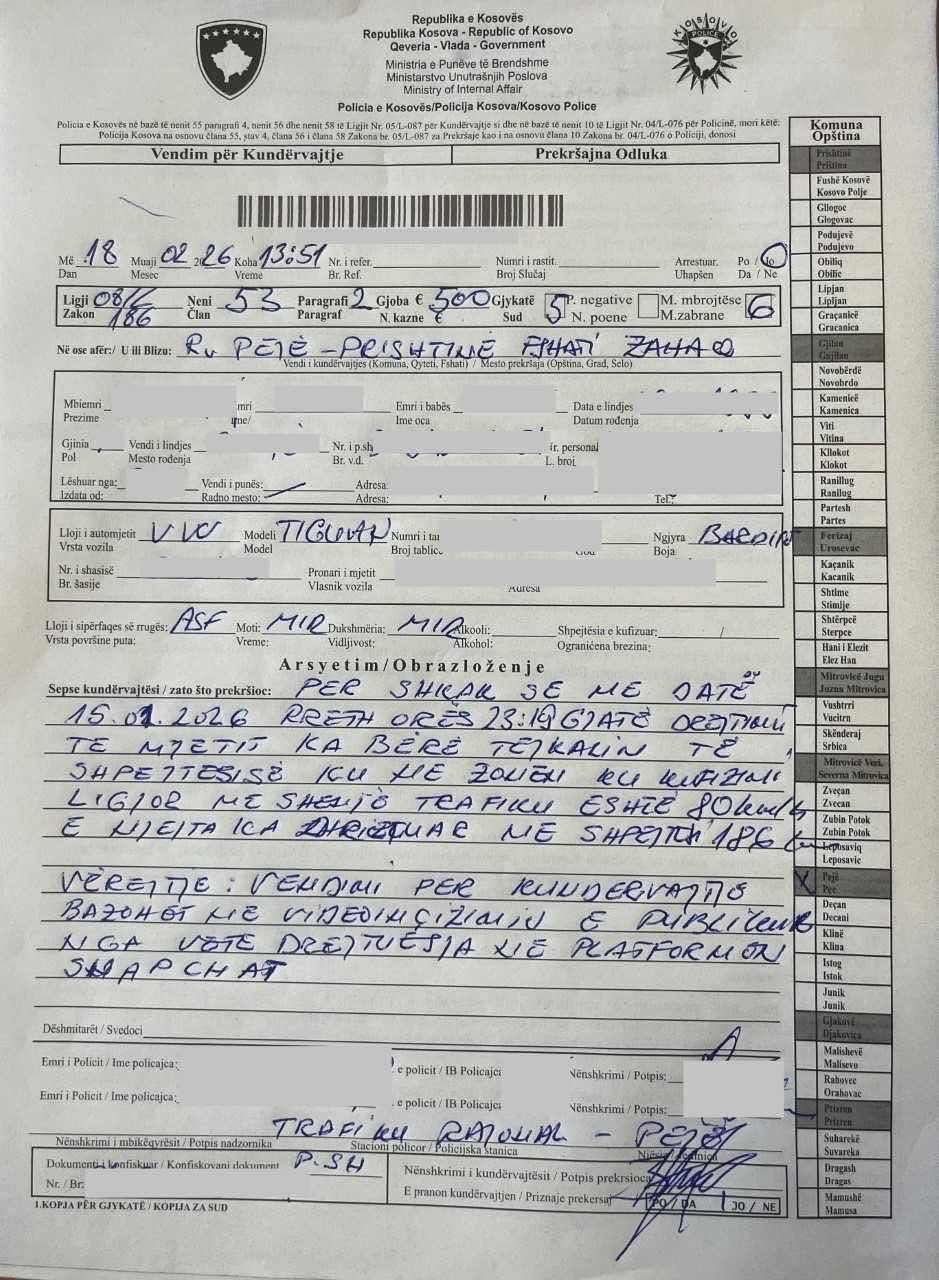 Republika e Kosovës
Republika Kosova - Republic of Kosovo
Qeveria - Vlada - Government
Ministria e Punëve të Brendshme
Ministarstvo Unutrašnjih Poslova
Ministry of Internal Affair
Policia e Kosovës/Policija Kosova/Kosovo Police
KOSOVO
POLICE
Policia e Kosovës në bazë të nenit 55 paragrafi 4, nenit 56 dhe nenit 58 të Ligjit Nr. 05/L-087 për Kundërvajtje si dhe në bazë të nenit 10 të Ligjit Nr. 04/L-076 për Policinë, mori këtë:
Policija Kosova na osnovu člana 55, stav 4, člana 56 i člana 58 Zakona br. 05/L-087 za Prekršaje kao i na osnovu člana 10 Zakona br. 04/L-076 o Policiji, donosi
Vendim për Kundërvajtje Prekršajna Odluka
Më 18 Muaji 02 2026 Koha 13:51 Nr. i refer. Numri i rastit. Arrestuar. Po / Jo
Dan Mesec Vreme Br. Ref. Broj Slučaj Uhapšen Da / Ne
Ligji 08/L Neni 53 Paragrafi 2 Gjoba € 500 Gjykatë 5 P. negative M. mbrojtëse 6
Zakon 186 Član Paragraf N. kazne € Sud N. poene M.zabrane
Në ose afër:/ U ili Blizu: Rr PEJË - PRISHTINË FSHATI ZAHAQ
Vendi i kundërvajtjes (Komuna, Qyteti, Fshati) / Mesto prekršaja (Opština, Grad, Selo)
Mbiemri mri Emri i babës Data e lindjes
Prezime me/ Ime oca Datum rođenja
Gjinia Vendi i lindjes Nr. i p.sh
Pol Mesto rođenja Br. v.d. L. broj
Lëshuar nga: Vendi i punës: Adresa:
Izdata od: Radno mesto: Adresa: Tel.:
Lloji i automjetit VW Modeli TIGUAN Numri i Ngjyra BARDHË
Vrsta vozila Model Broj tablice Boja
Nr. i shasisë Pronari i mjetit
Br. šasije Vlasnik vozila Adresa
Lloji i sipërfaqes së rrugës: ASF Moti: MIR Dukshmëria: MIR Alkooli: Shpejtësia e kufizuar: /
Vrsta površine puta: Vreme: Vidljivost: Alkohol: Ograničena brezina:
Arsyetim/Obrazloženje
Sepse kundërvajtësi / zato što prekršioc: PER SHKAK SE ME DATË
15.01.2026 RRETH ORËS 23:19 GJATË DREJTIMIT
TE MJETIT KA BËRË TEJKALIM TË
SHPEJTESISË KU NE ZONËN KU KUFIZIMI
LIGJOR ME SHENJË TRAFIKU ËSHTË 80 km/h
E NJEJTA KA ME SHPEJTSI 186
VËREJTJE: VENDIMI PER KUNDERVAJTJE
BAZOHET NE VIDEOINÇIZIMIN E PUBLIKUAR
NGA VETË DREJTUESJA NE PLATFORMEN
SNAPCHAT
Dëshmitarët / Svedoci
Emri i Policit / Ime policajca: e policit / IB Policajca Nënshkrimi / Potpis:
Emri i Policit / Ime policajca: e policit / IB Policajca Nënshkrimi / Potpis:
TRAFIKU RAJONAL - PEJË
Nënshkrimi i mbikëqyrësit / Potpis nadzornika Stacioni policor / Policijska stanica
Dokumenti i konfiskuar / Konfiskovani dokument P.SH
Nr. / Br:
Nënshkrimi i kundërvajtësit / Potpis prekršioca
E pranon kundërvajtjen / Priznaje prekersaj PO / DA JO / NE
1.KOPJA PËR GJYKATË / KOPIJA ZA SUD
Komuna
Opština
Prishtinë
Priština
Fushë Kosovë
Kosovo Polje
Gllogoc
Glogovac
Podujevë
Podujevo
Obiliq
Obilic
Lipjan
Lipljan
Graçanicë
Gracanica
Gjilan
Gnjilan
Novobërdë
Novobrdo
Kamenicë
Kamenica
Viti
Vitina
Kllokot
Klokot
Ranillug
Ranilug
Partesh
Partes
Ferizaj
Urosevac
Kaçanik
Kacanik
Shtime
Stimlje
Shtërpcë
Sterpce
Hani i Elezit
Elez Han
Mitrovicë Jugu
Juzna Mitrovica
Vushtrri
Vucitrn
Skënderaj
Srbica
Mitrovicë Veri.
Severna Mitrovica
Zveçan
Zvecan
Zubin Potok
Zubin Potok
Leposaviq
Leposavic
X Pejë
Pec
Deçan
Decani
Klinë
Klina
Istog
Istok
Junik
Junik
Gjakovë
Djakovica
Malishevë
Malisevo
Rahovec
Orahovac
Prizren
Prizren
Suharekë
Suvareka
Dragash
Dragas
Mamushë
Mamusa